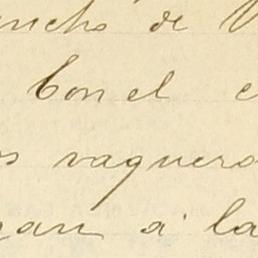 ncho de
Con el
vaquero
gan á la